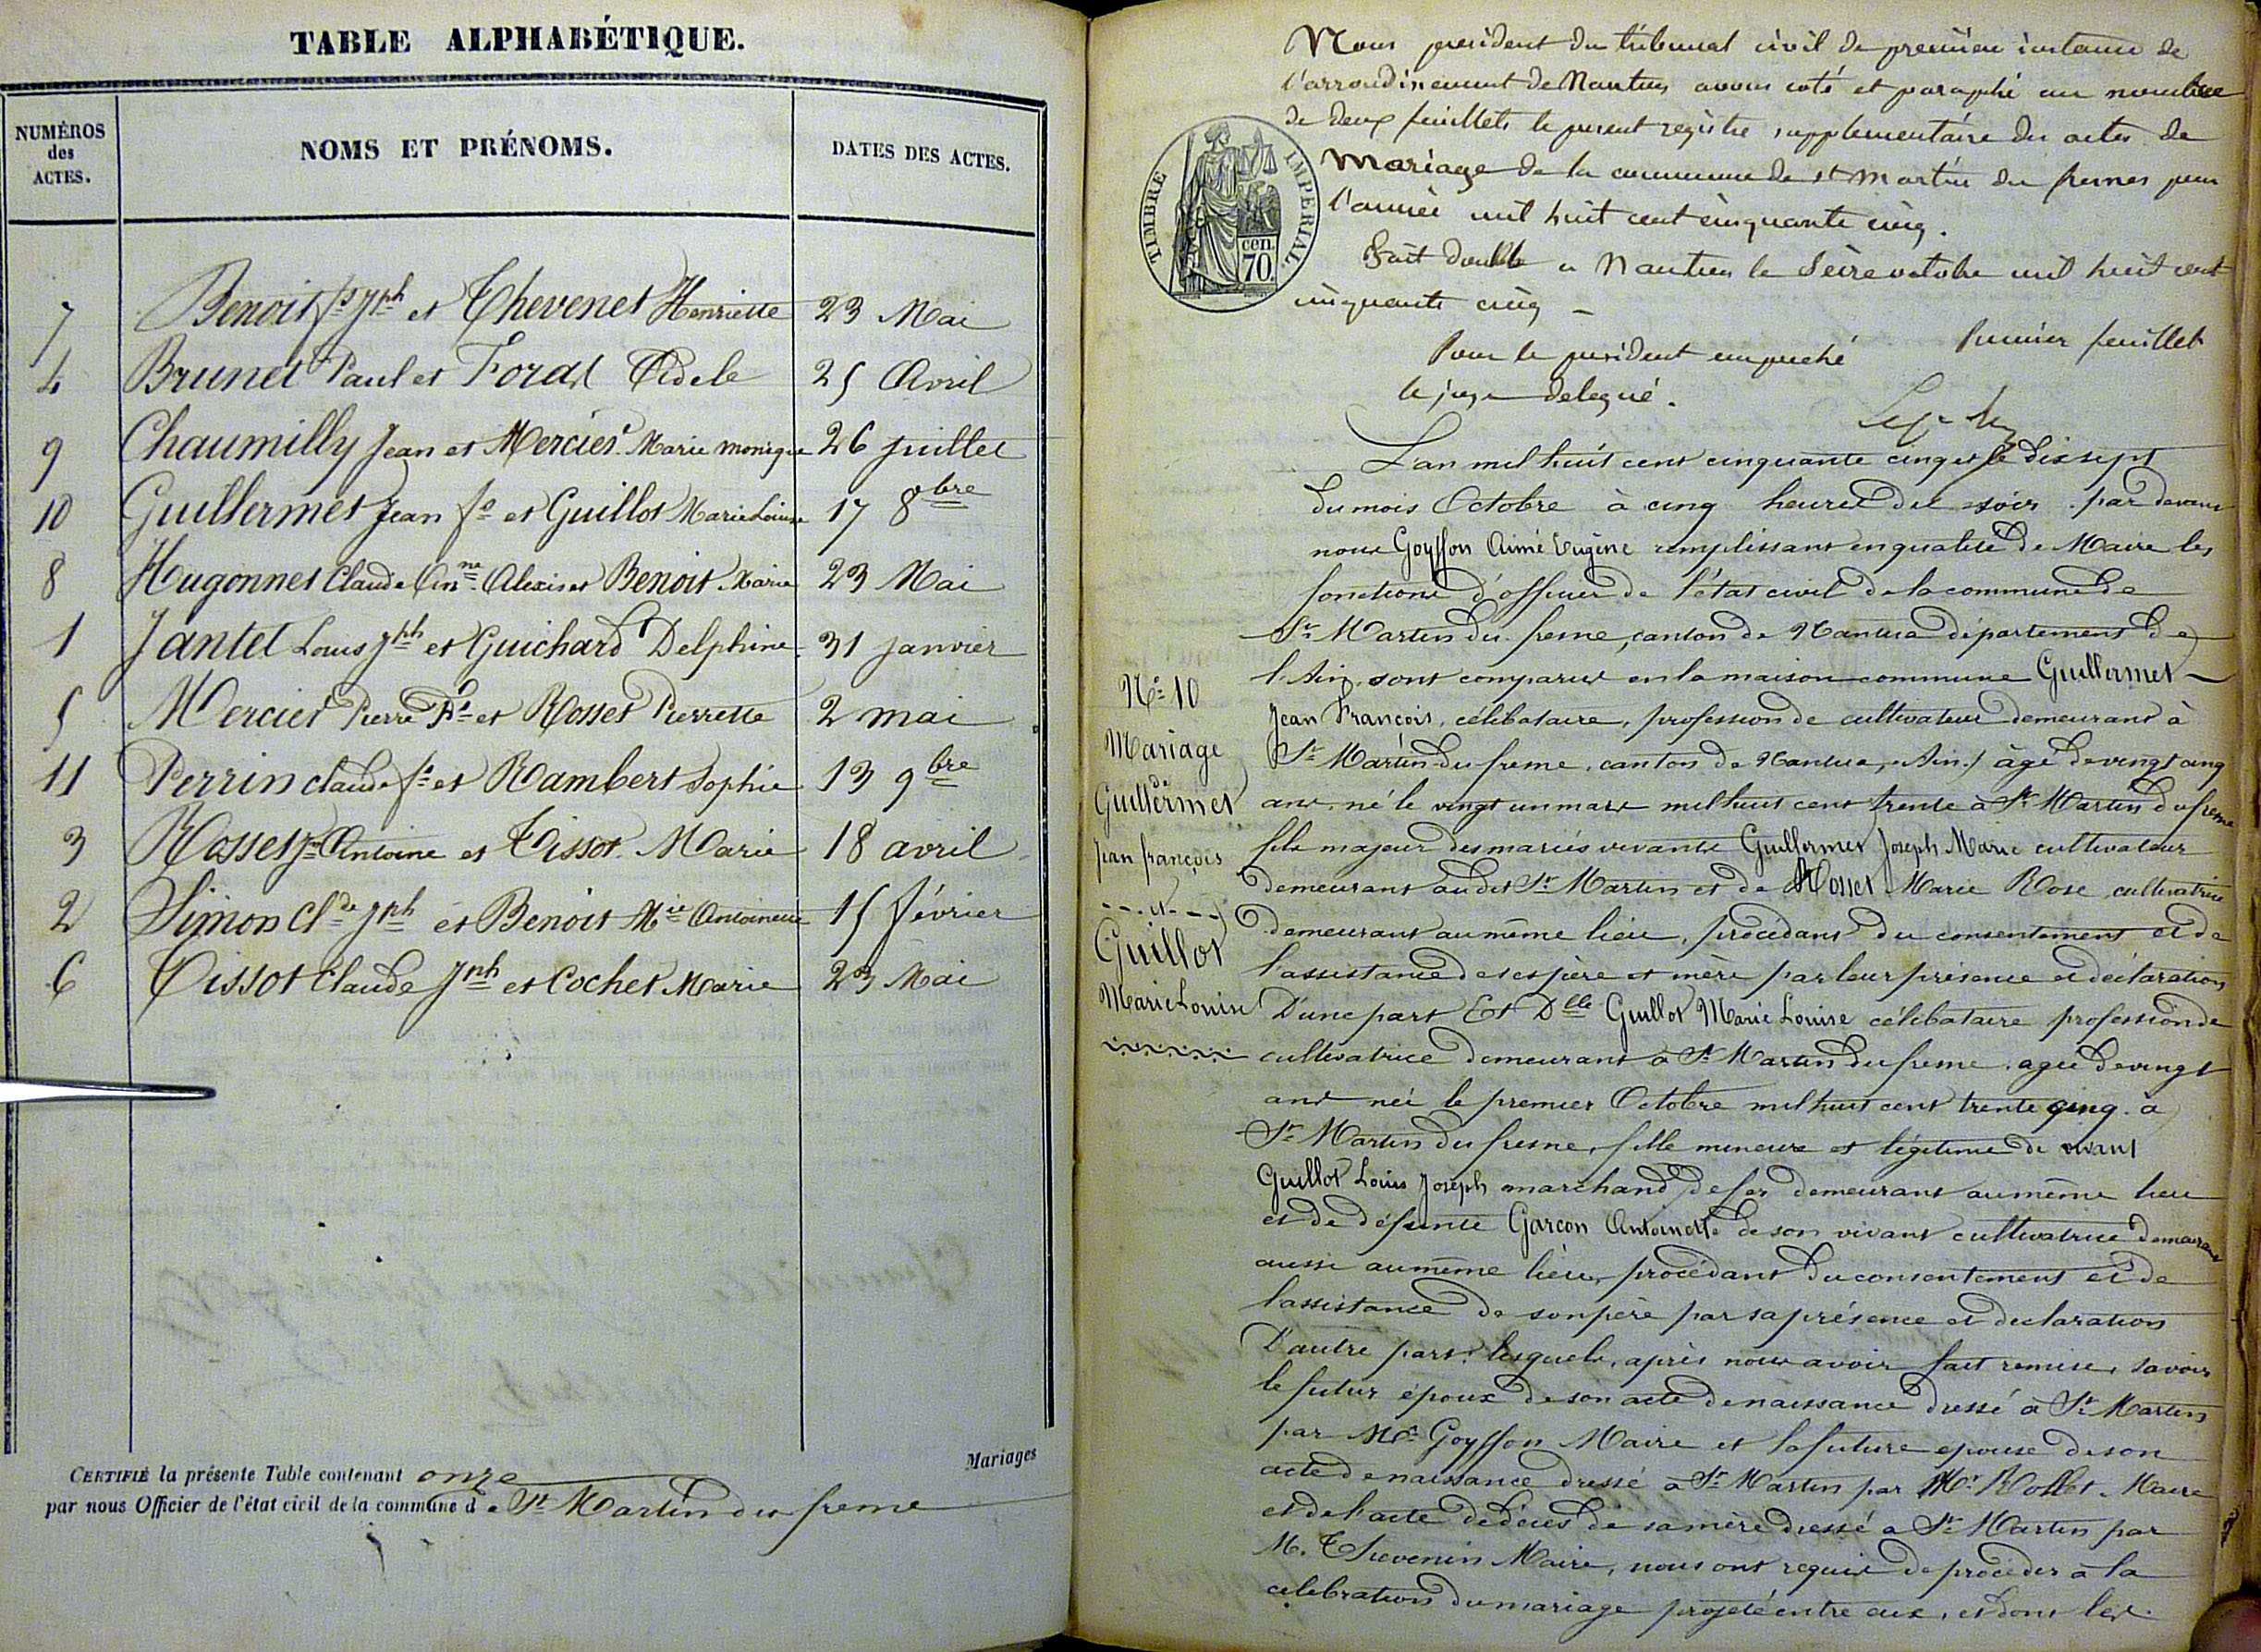 TABLE ALPHABÉTIQUE.
NUMÉROS des ACTES.
NOMS ET PRÉNOMS.
DATES DES ACTES.
7 Benoit fs Jph et Thevenet Henriette 23 Mai
4 Brunet Paul et Forat Adele 25 Avril
9 Chaumilly Jean et Mercier Marie Monique 26 juillet
10 Guillermet Jean fs et Guillot Marie Louise 17 8bre
8 Hugonnet Claude Ainné Alexis et Benoit Marie 23 Mai
1 Jantet Louis Jph et Guichard Delphine 31 janvier
5 Mercier Pierre Fs et Rosset Pierrette 2 mai
11 Perrin Claude fs et Rambert Sophie 13 9bre
3 Rosset Antoine et Tissot Marie 18 avril
2 Simon Cde Jph et Benoit Mie Antoinette 15 février
6 Tissot Claude Jph et Cochet Marie 23 Mai
Mariages
CERTIFIÉ la présente Table contenant onze
par nous Officier de l'état civil de la commune d e St Martin du fresne
Nous president du tribunal civil de premiere instance de
l'arrondissement de Nantua avons coté et paraphé au nombre
de deux feuillets le present registre supplementaire des actes de
mariage de la commune de st martin du fresnes pour
l'année mil huit cent cinquante cinq.
TIMBRE IMPERIAL
cen. 70
Fait double a Nantua le seize octobre mil huit cent
cinquante cinq –
Pour le president empeché
Premier feuillet
le juge delegué.
L'an mil huit cent cinquante cinq et le dix sept
du mois Octobre à cinq heures du soir par devant
nous Goyffon Aimé Eugène remplissant en qualité de Maire les
fonctions d'officier de l'état civil de la commune de
St Martin du fresne, canton de Nantua département de
l'Ain, sont comparus en la maison commune Guillermet
Jean François, célibataire, profession de cultivateur demeurant à
St Martin du fresne, canton de Nantua, (Ain) âgé de vingt cinq
ans, né le vingt un mars mil huit cent trente à St Martin du fresne
fils majeur des mariés vivants Guillermet Joseph Marie cultivateur
demeurant audit St Martin et de Rosset Marie Rose cultivatrice
demeurant au même lieu, procédant du consentement et de
l'assistance de ses père et mère par leur présence et déclaration
D'une part Et Dlle Guillot Marie Louise célibataire profession de
cultivatrice demeurant à St Martin du fresne agée de vingt
ans née le premier Octobre mil huit cent trente cinq à
St Martin du fresne, fille mineure et légitime de vivant
Guillot Louis Joseph marchand de fer demeurant au même lieu
et de défunte Garçon Antoinette de son vivant cultivatrice demeurant
aussi au même lieu, procédant du consentement et de
l'assistance de son père par sa présence et declaration
D'autre part. lesquels, après nous avoir fait remise, savoir
le futur époux de son acte de naissance dressé à St Martin
par Mr Goyffon Maire et la future epouse de son
acte de naissance dressé à St Martin par Mr Rollet Maire
et de l'acte de décès de sa mère dressé a St Martin par
M. Thevenin Maire, nous ont requis de procéder à la
célébration du mariage projeté entre eux, et dont les
No 10
Mariage
de
Guillermet
Jean françois
et
Guillot
Marie Louise